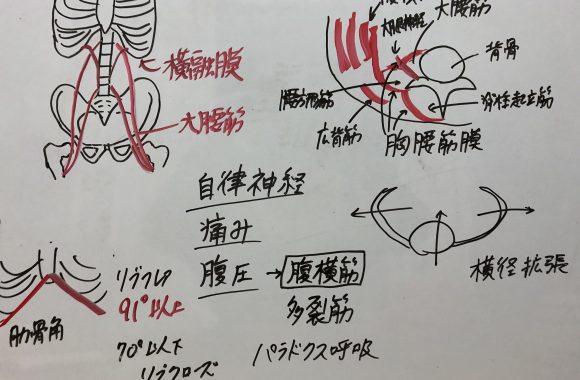 横隔膜
大腰筋
大腰筋
背骨
腰方形筋
脊柱起立筋
広背筋
胸腰筋膜
自律神経
痛み
腹圧 → 腹横筋
多裂筋
横径拡張
肋骨角
リブフレア
91°以上
70°以下
リブクローズ
パラドクス呼吸